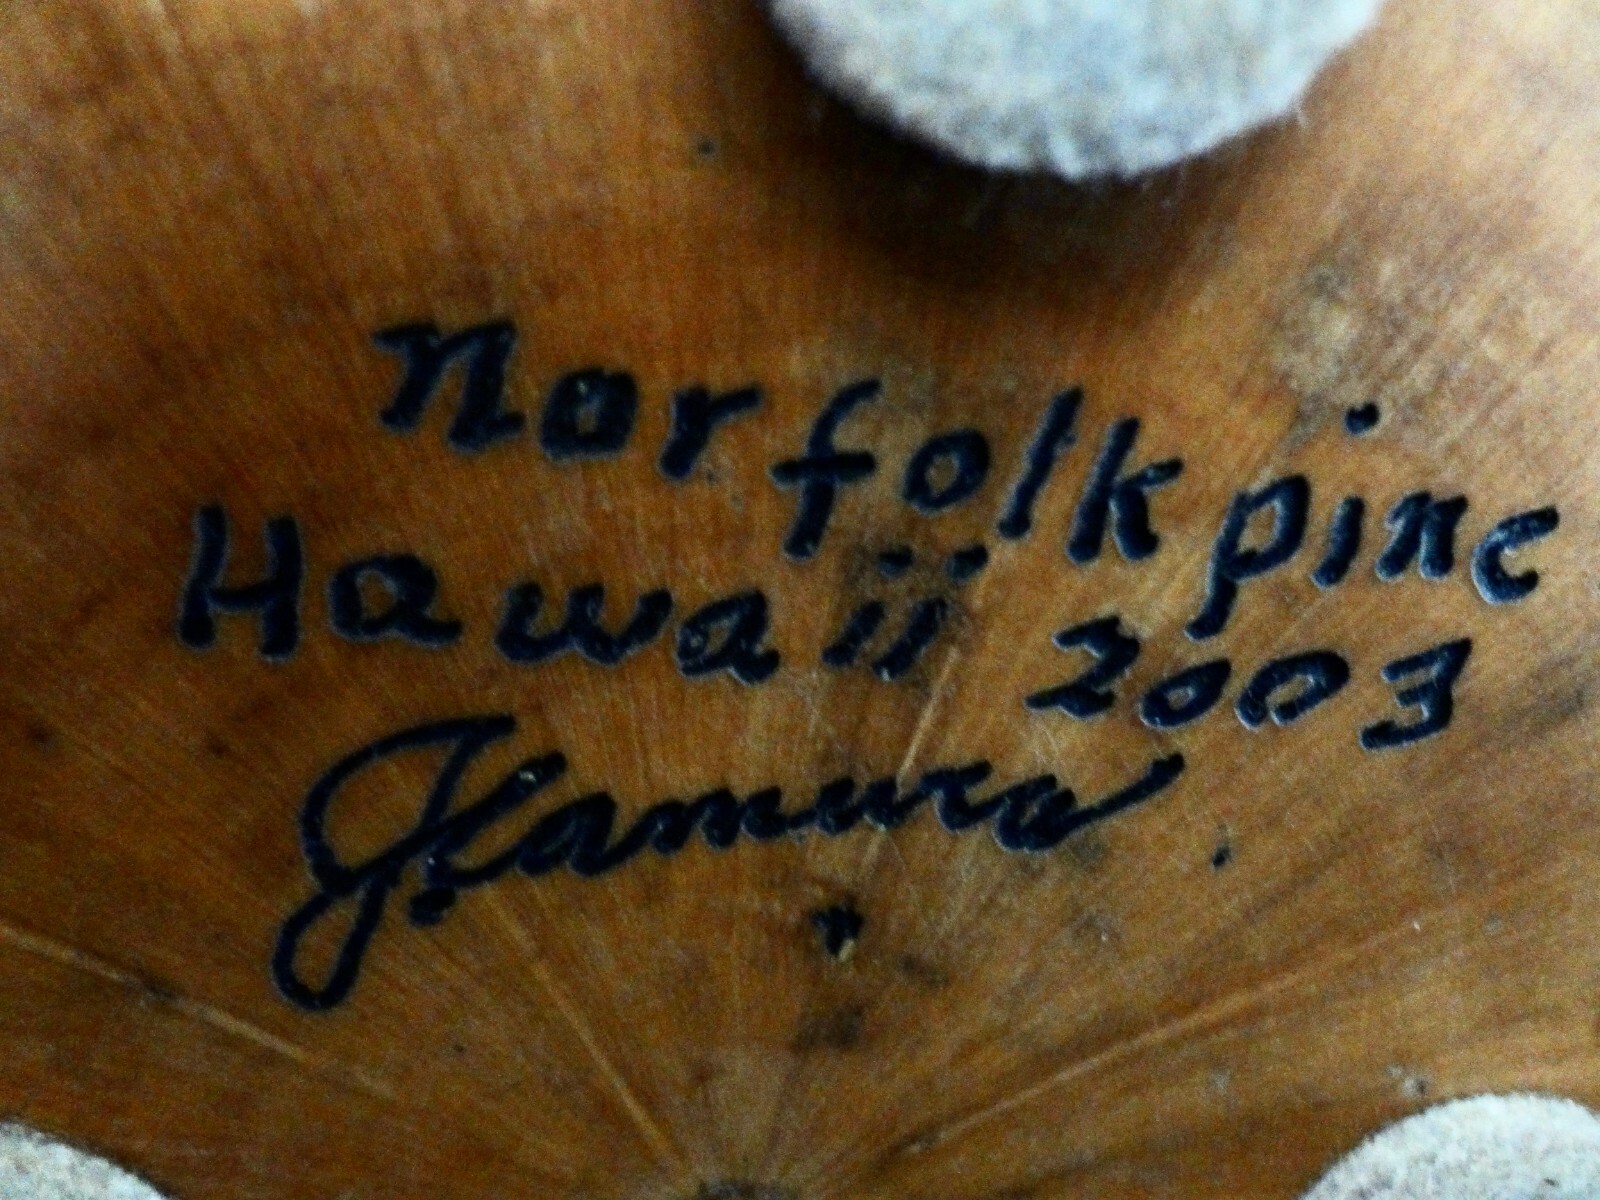 Norfolk pine
Hawaii 2003
J Kamura